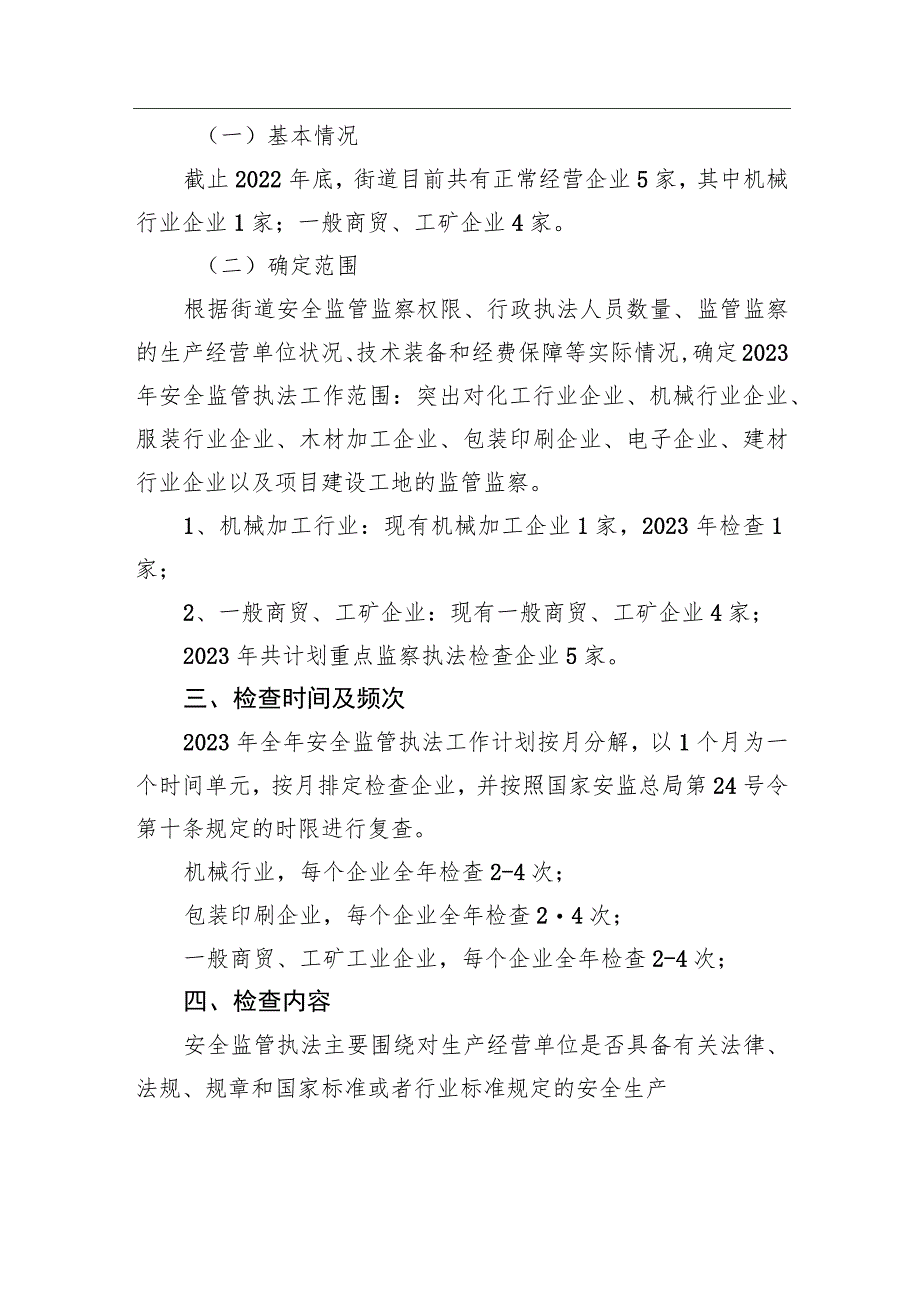 （一）基本情况
截止 2022 年底，街道目前共有正常经营企业 5 家，其中机械
行业企业 1 家；一般商贸、工矿企业 4 家。
（二）确定范围
根据街道安全监管监察权限、行政执法人员数量、监管监察
的生产经营单位状况、技术装备和经费保障等实际情况，确定 2023
年安全监管执法工作范围：突出对化工行业企业、机械行业企业、
服装行业企业、木材加工企业、包装印刷企业、电子企业、建材
行业企业以及项目建设工地的监管监察。
1、机械加工行业：现有机械加工企业 1 家，2023 年检查 1
家；
2、一般商贸、工矿企业：现有一般商贸、工矿企业 4 家；
2023 年共计划重点监察执法检查企业 5 家。
三、检查时间及频次
2023 年全年安全监管执法工作计划按月分解，以 1 个月为一
个时间单元，按月排定检查企业，并按照国家安监总局第 24 号令
第十条规定的时限进行复查。
机械行业，每个企业全年检查 2-4 次；
包装印刷企业，每个企业全年检查 2•4 次；
一般商贸、工矿工业企业，每个企业全年检查 2-4 次；
四、检查内容
安全监管执法主要围绕对生产经营单位是否具备有关法律、
法规、规章和国家标准或者行业标准规定的安全生产